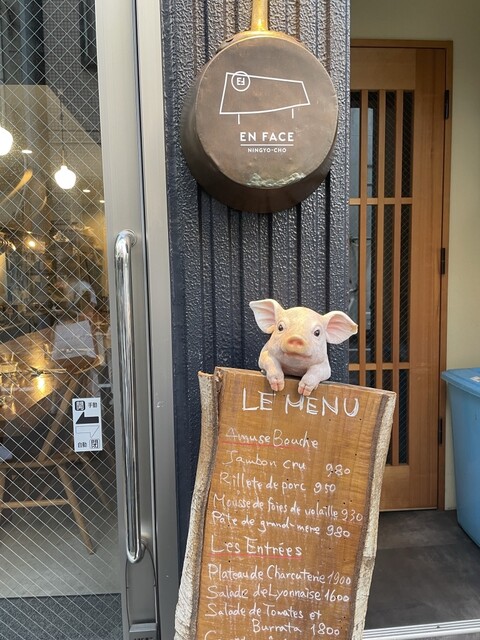 EN FACE
NINGYO-CHO
開 手動
自動 閉
LE MENU
Amuse Bouche
Jambon cru 980
Rillete de porc 950
Mousse de foies de volaille 930
Pâte de grand-mere 980
Les Entrées
Plateau de Charcuterie 1900
Salade de Lyonnaise 1600
Salade de Tomates et
Burrata 1800